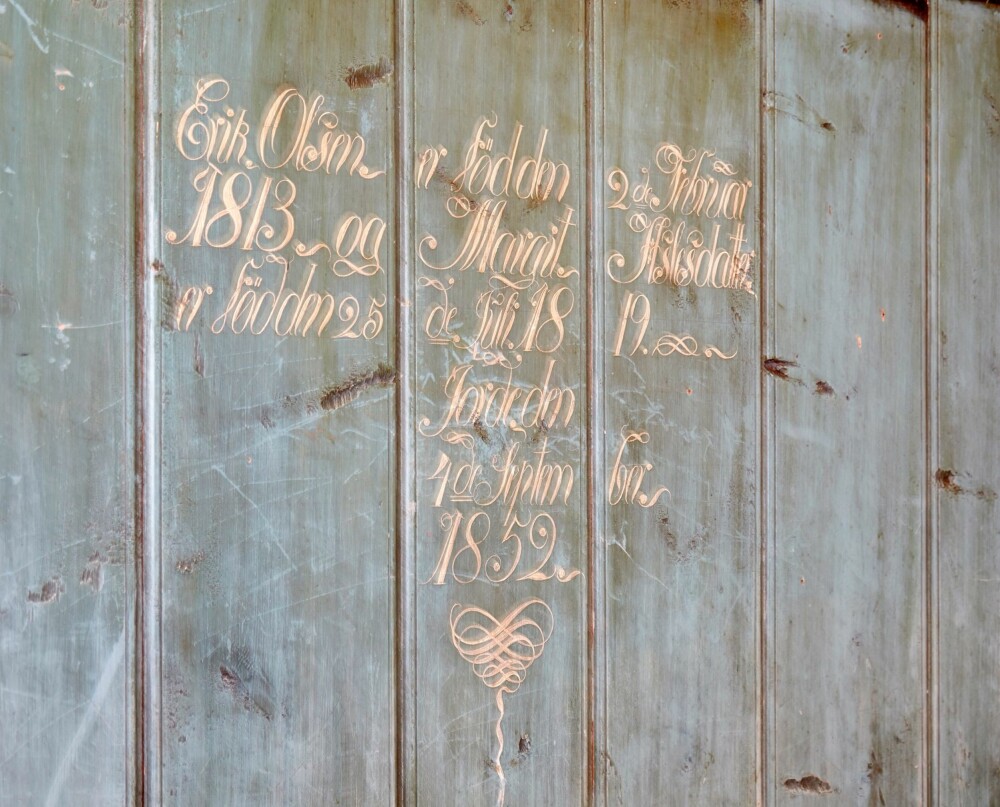 Erik Olsen er födden 2de Februar
1813 og Margit Aslesdatter
er födden 25 de Juli 18 19.
Jorda, den
4de Septem ber
1852.